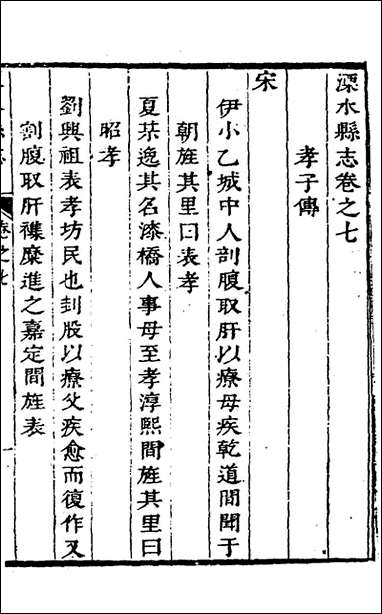 溧水縣志卷之七
孝子傳
宋
伊小乙城中人剖腹取肝以療母疾乾道間聞于
朝旌其里曰表孝
夏某逸其名漆橋人事母至孝淳熙間旌其里曰
昭孝
劉興祖表孝坊民也刲股以療父疾愈而復作又
割腹取肝襍糜進之嘉定間旌表
卷之七
一